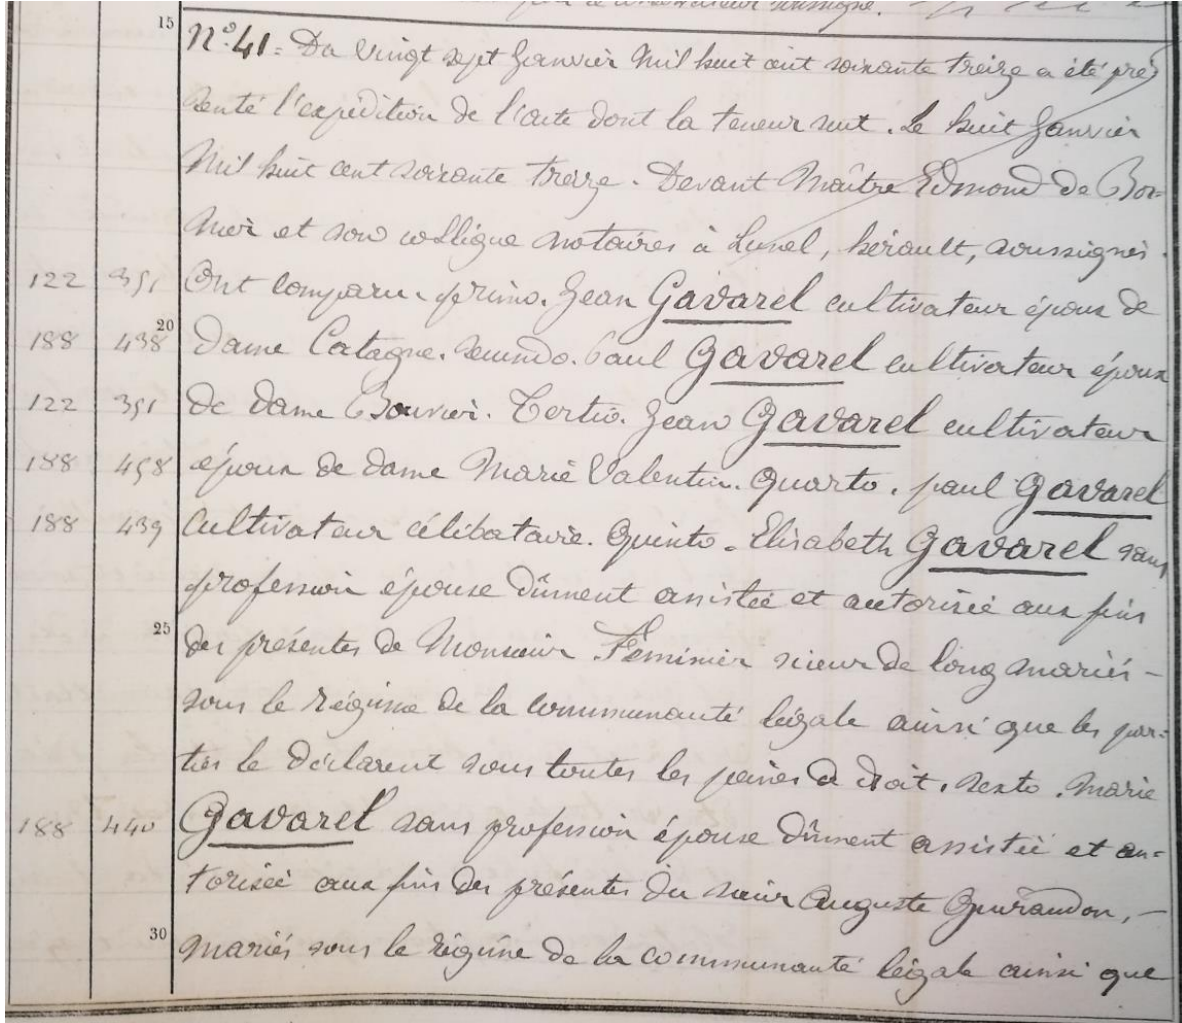 soussigné.
15
N° 41 = Du vingt sept Janvier Mil huit cent soixante treize a été pré
senté l'expédition de l'acte dont la teneur suit. Le huit Janvier
Mil huit cent soixante treize. Devant Maître Edmond de Bor-
nier et son collègue notaires à Lunel, hérault, soussignés.
122 351 Ont comparu. primo. Jean Gavarel cultivateur époux de
188 438 20 dame Catagne. secundo. Paul Gavarel cultivateur époux
122 351 de dame Bouvier. Tertio. Jean Gavarel cultivateur
188 458 époux de dame Marie Valentin. Quarto. paul Gavarel
188 439 Cultivateur célibataire. Quinto. Elisabeth Gavarel sans
profession épouse dûment assistée et autorisée aux fins
25 des présentes de Monsieur Féminier scieur de long mariés -
sous le régime de la communauté légale ainsi que les par-
ties le déclarent sous toutes les peines de droit. sexto. Marie
188 440 Gavarel sans profession épouse dûment assistée et au-
torisée aux fins des présentes du sieur Auguste -
30 mariés sous le régime de la communauté légale ainsi que